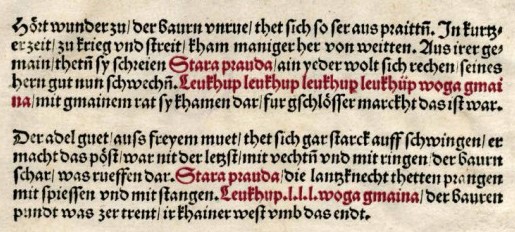 Hört wunder zu/der baurn vnrue/thet sich so ser aus praittñ. In kurtz-
er zeit/zu krieg vnd streit/kham maniger her von weitten. Aus irer ge-
main/thetñ sy schreien Stara prauda/ain yeder wolt sich rechen/seines
hern gut nun schwechñ. Leukhup leukhup leukhup leukhüp woga gmai
na/mit gmainem rat sy khamen dar/fur gschlösser marckht das ist war.
Der adel guet/auss freyem muet/thet sich gar starck auff schwingen/er
macht das pöst/war nit der letzst/mit vechtñ vnd mit ringen/der baurn
schar/was rueffen dar. Stara prauda/die lantzknecht thetten prangen
mit spiessen vnd mit stangen. Leukhup.l.l.l.woga gmaina/der bauren
pundt was zer trent/ir khainer west vmb das endt.